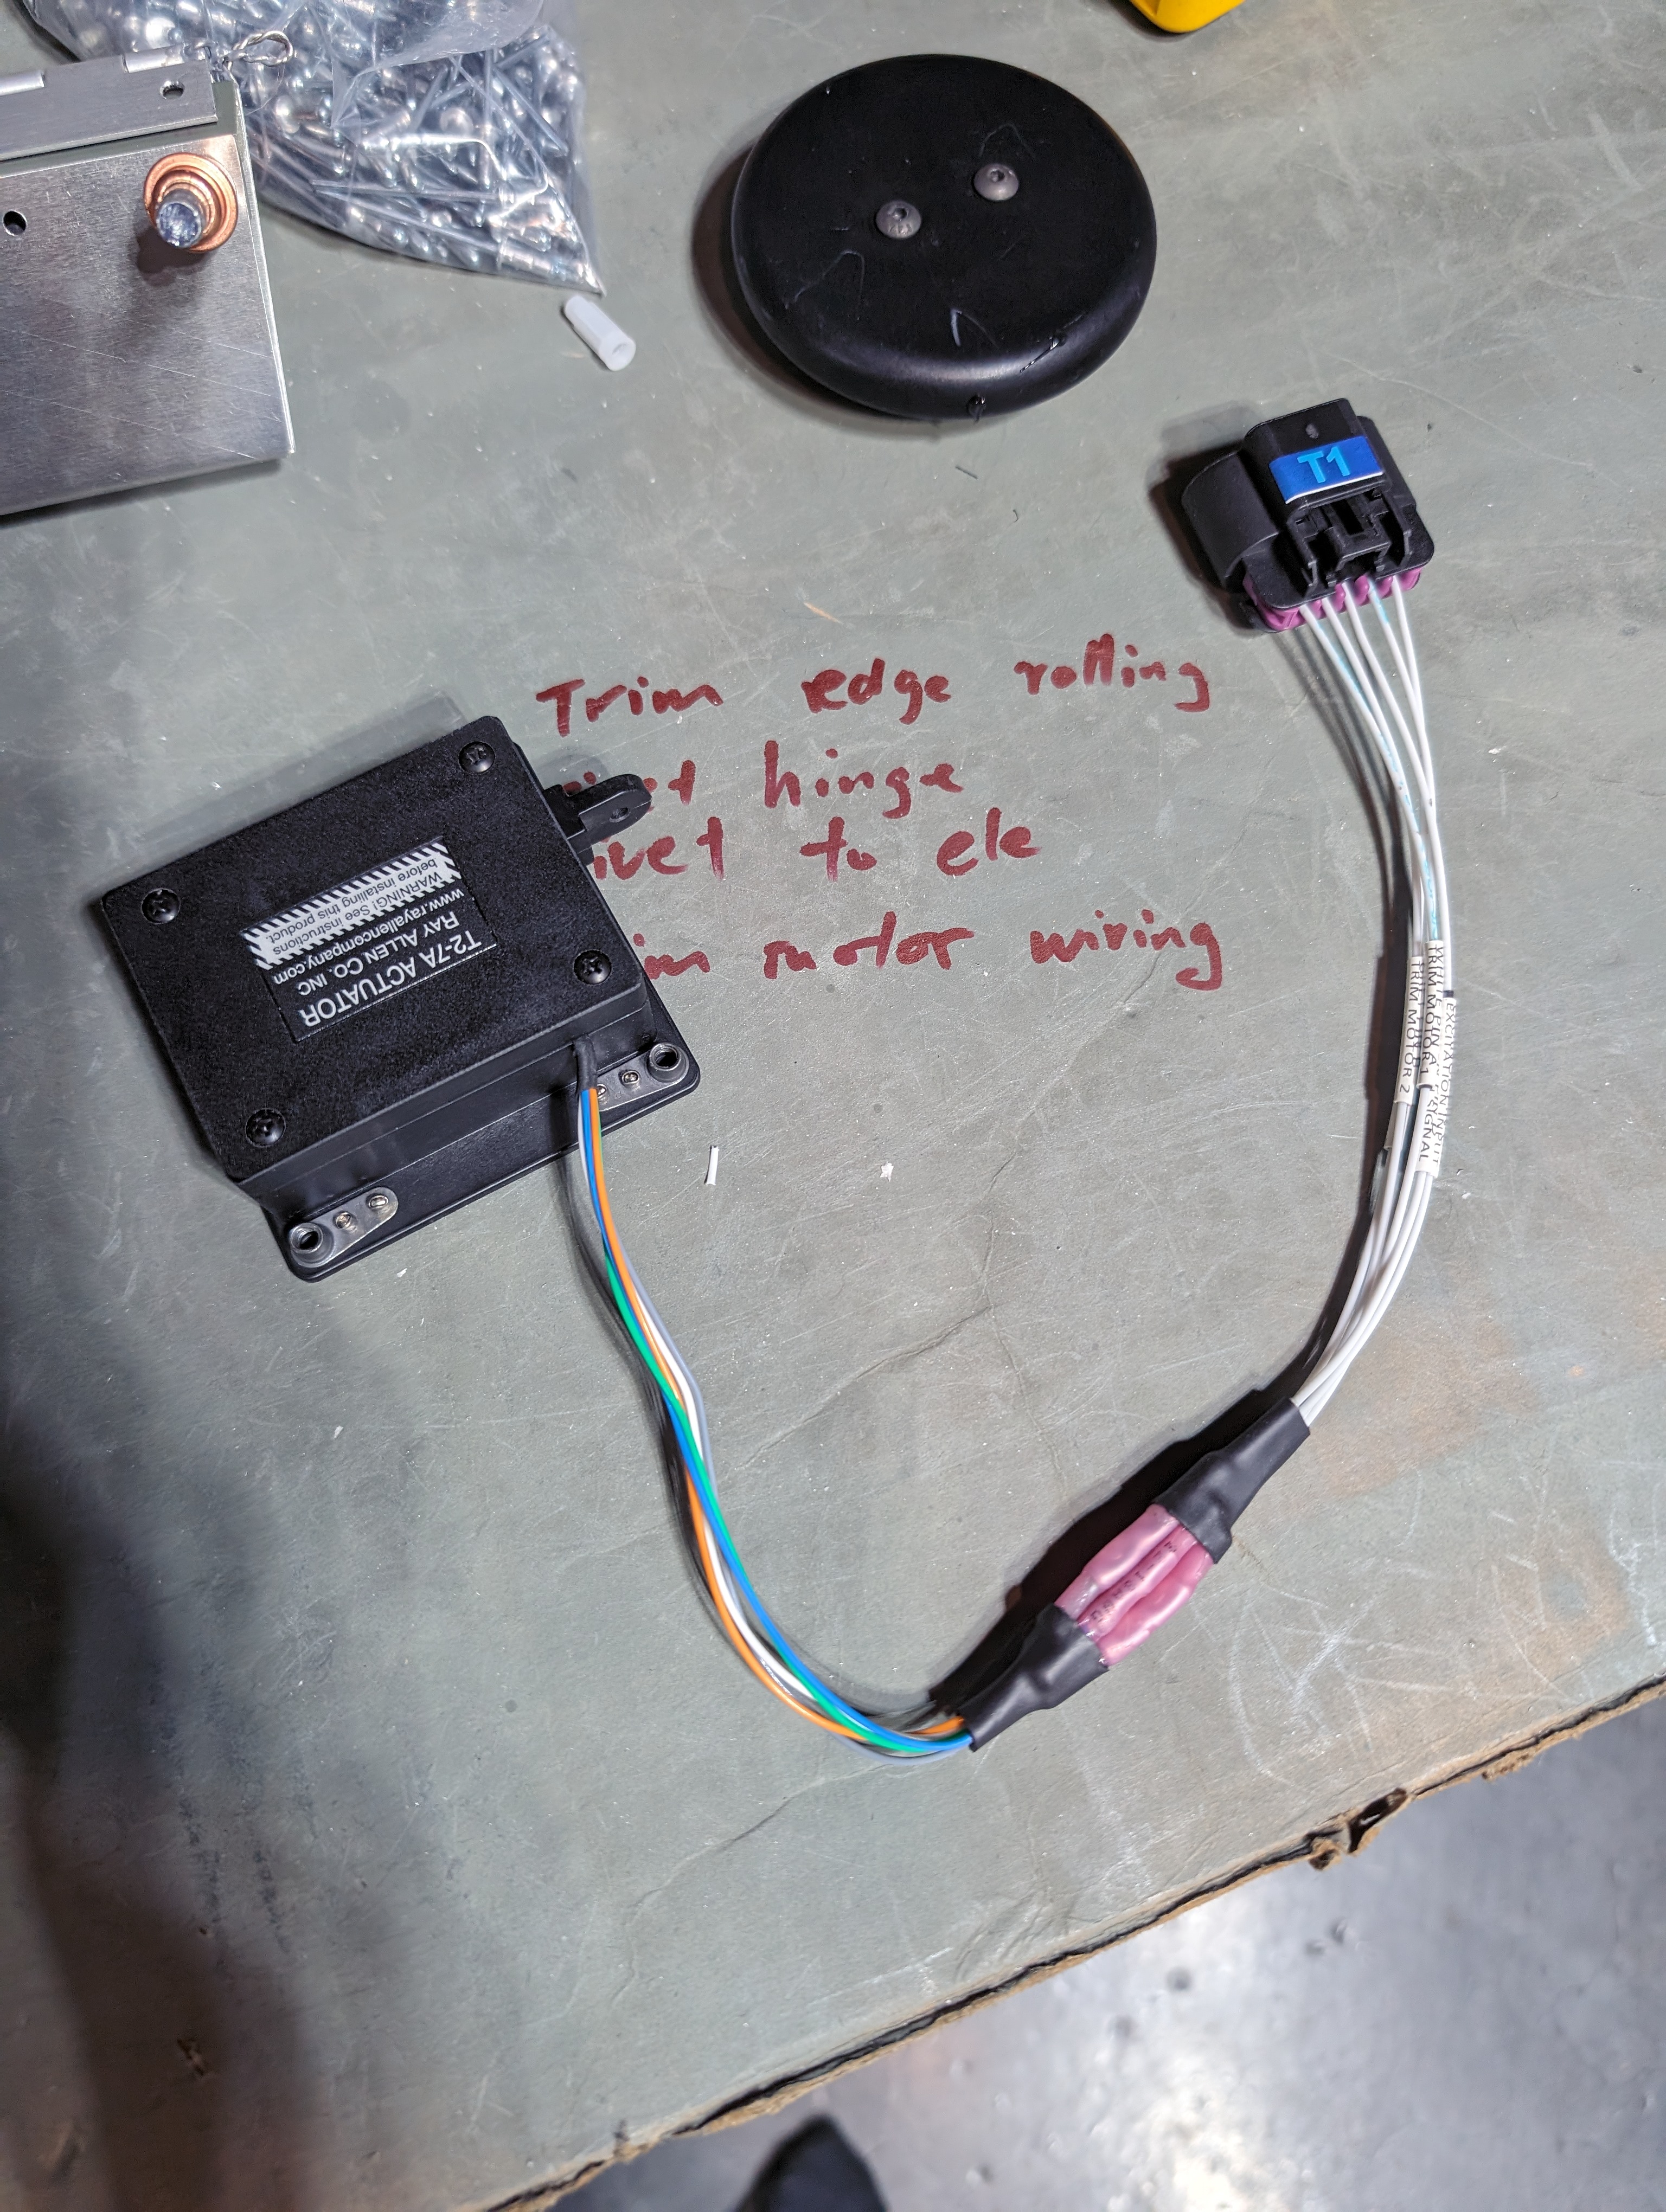 T1
Trim edge rolling
hinge
to ele
motor wiring
T2-7A ACTUATOR
RAY ALLEN CO. INC
www.rayallencompany.com
WARNING! See instructions
before installing this product.
TRIM MOTOR 1
TRIM MOTOR 2
EXCITATION INPUT
SIGNAL